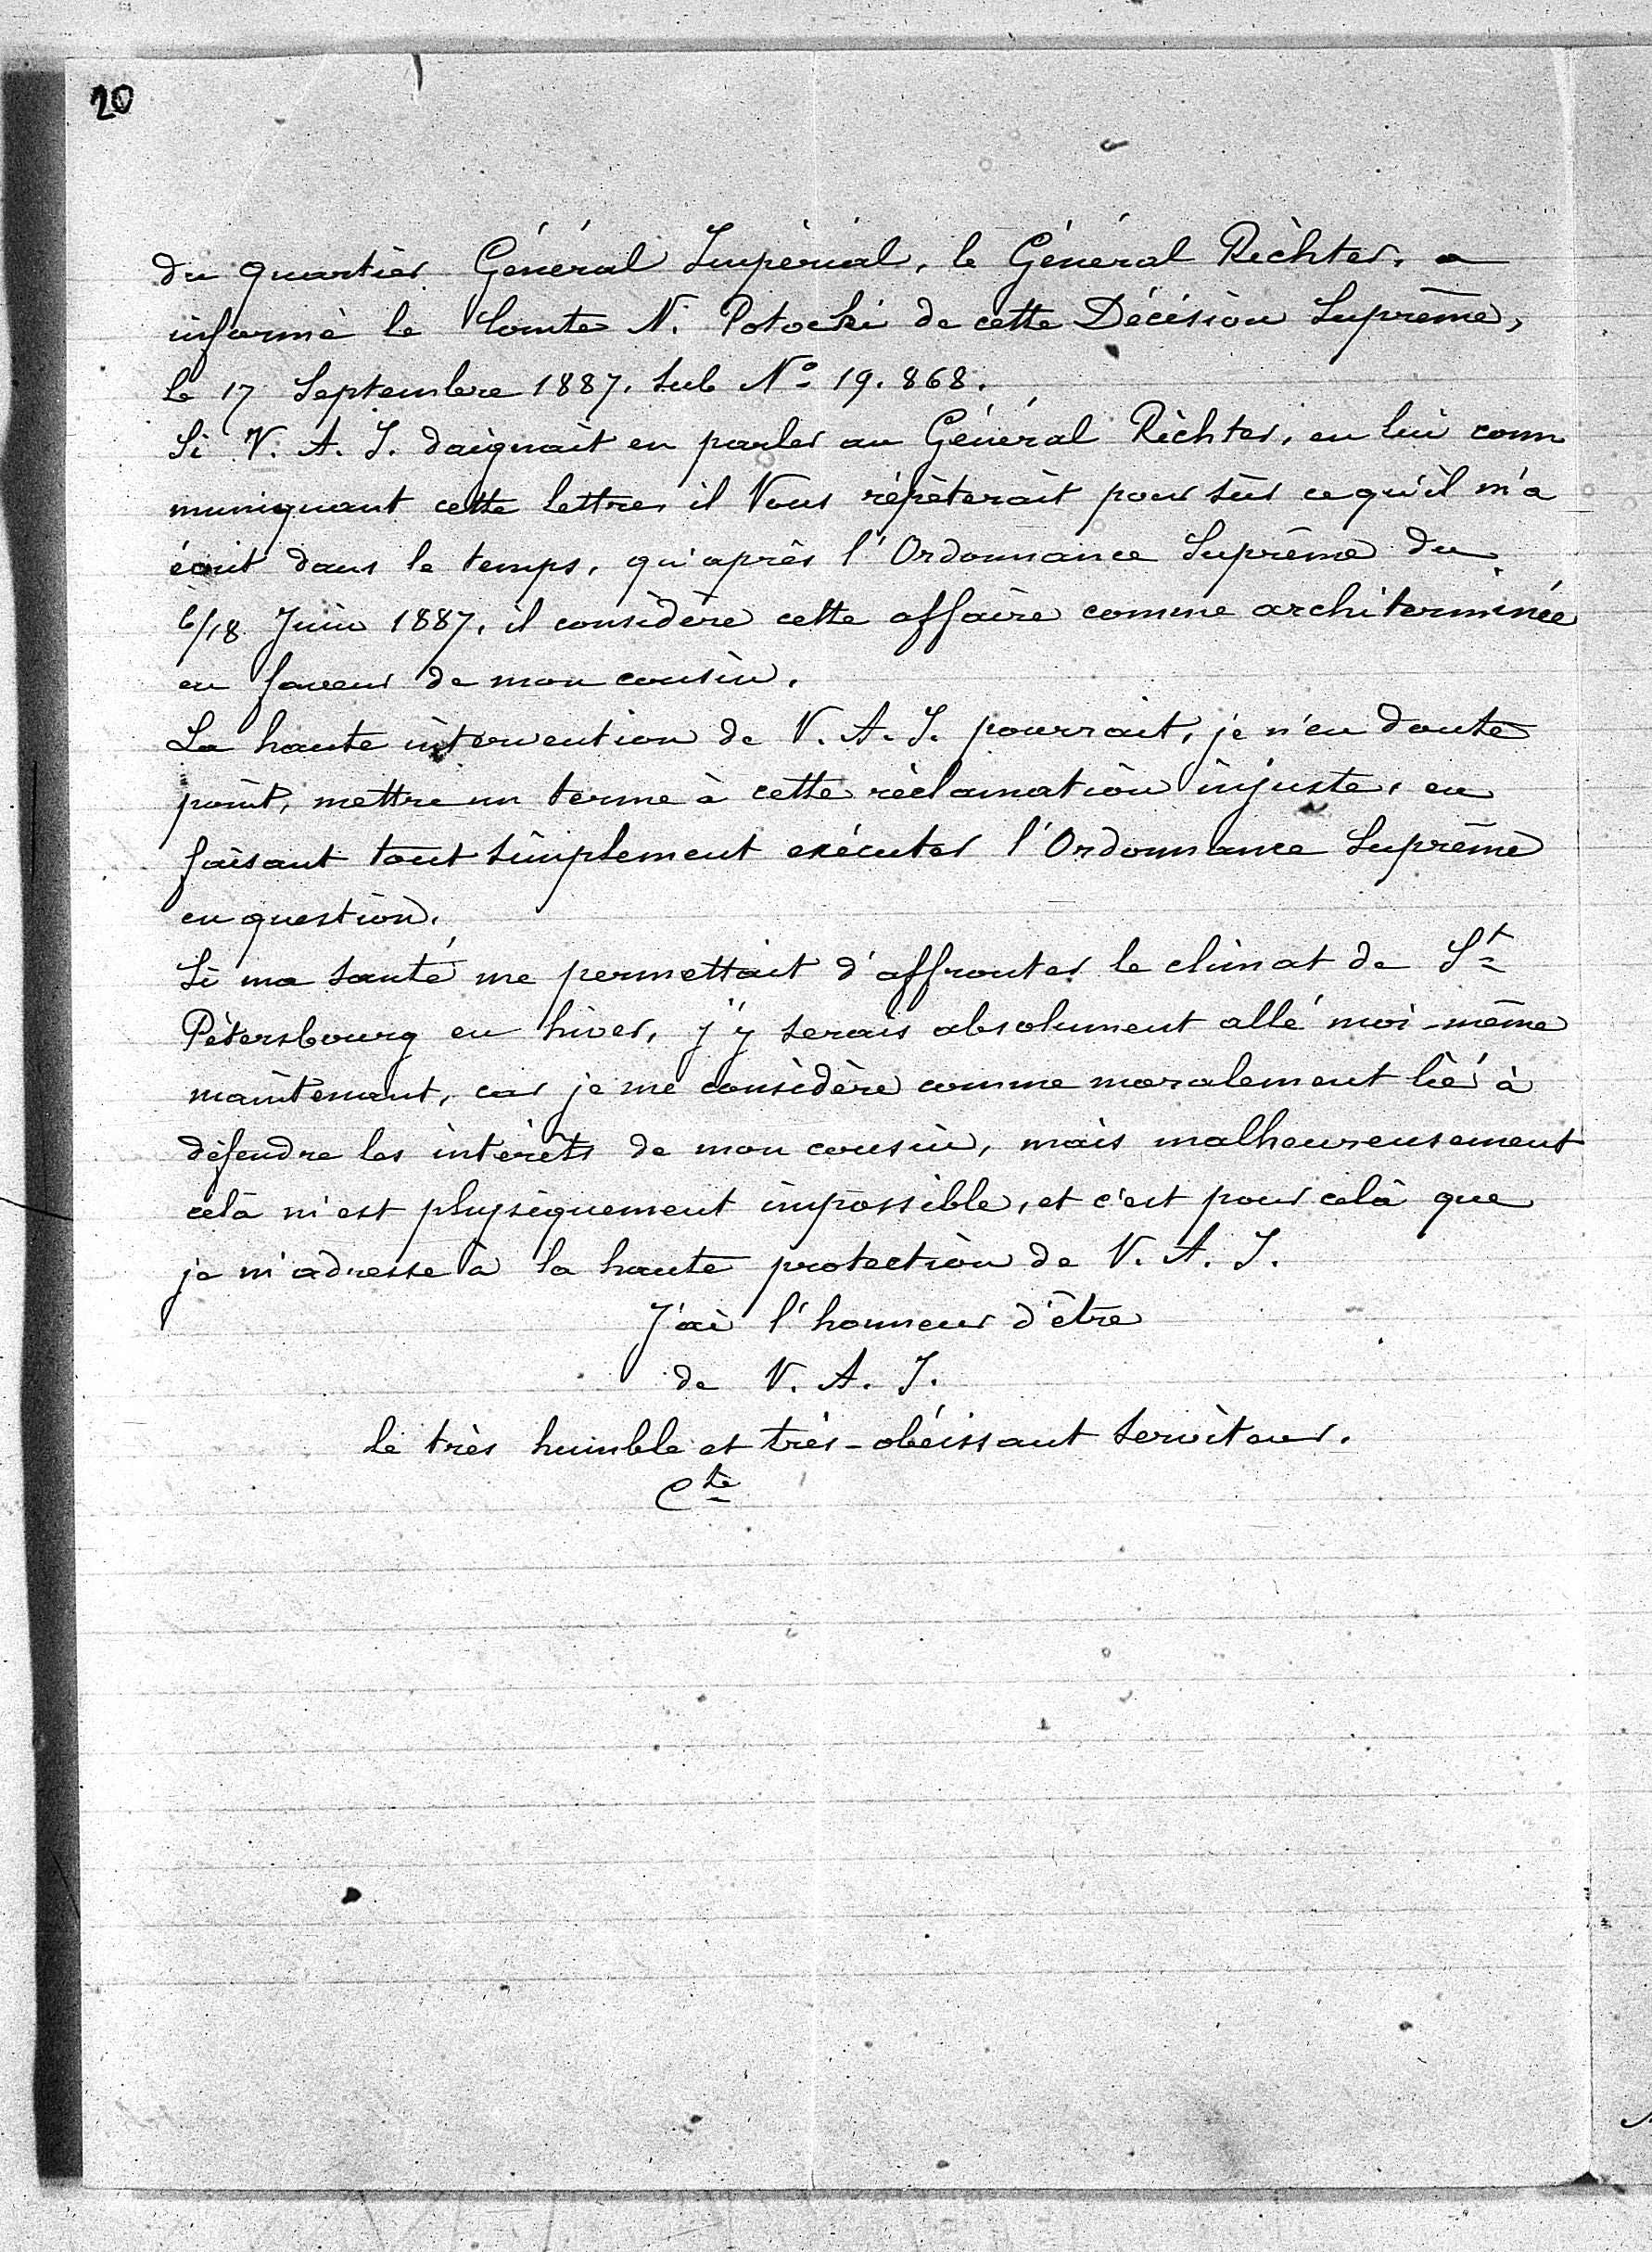 20
du quartièr Général Impérial, le Général Richter, a
informé le Comte N. Potocki de cette Décision Suprême,
le 17 Septembre 1887. sub No 19.868.
Si V. A. I. daignait en parler au Général Richter, en lui com
muniquant cette lettre, il Vous répèterait pour sûr ce qu'il m'a
écrit dans le temps, qu'après l'Ordonnance Suprême du
6/18 Juin 1887. il considère cette affaire comme architerminée
en faveur de mon cousin.
La haute intervention de V. A. I. pourrait, je n'en doute
point, mettre un terme à cette réclamation injuste, en
faisant tout simplement exécuter l'Ordonnance Suprême
en question.
Si ma santé me permettait d'affronter le climat de St
Pétersbourg en hiver, j'y serais absolument allé moi-même
maintenant, car je me considère comme moralement lié à
défendre les intérêts de mon cousin, mais malheureusement
celà m'est physiquement impossible, et c'est pour celà que
je m'adresse à la haute protection de V. A. I.
J'ai l'honneur d'être
de V. A. I.
le très humble et très-obéissant serviteur.
Cte